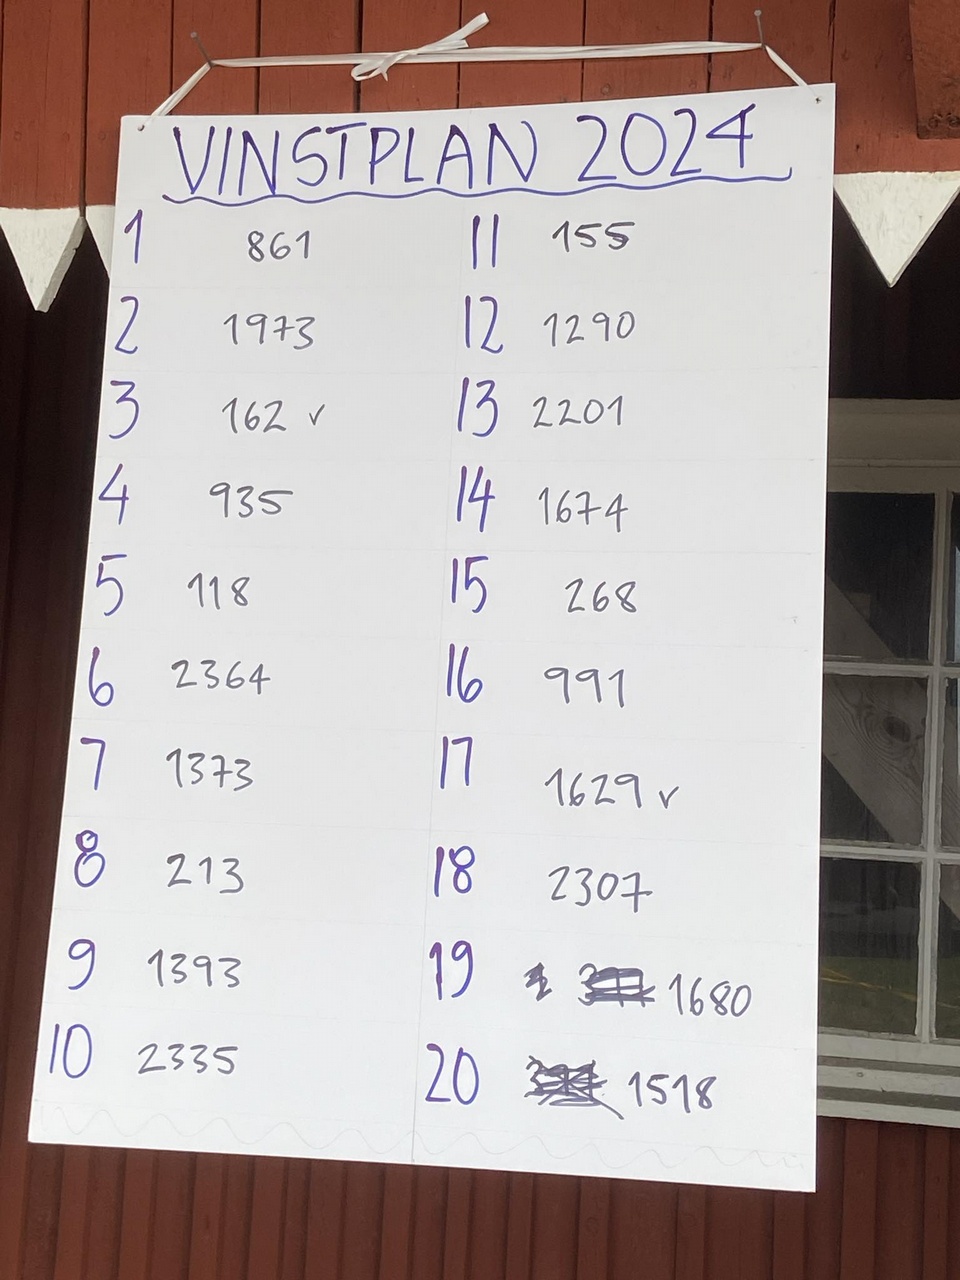 VINSTPLAN 2024
1 861
2 1973
3 162 v
4 935
5 118
6 2364
7 1373
8 213
9 1393
10 2335
11 155
12 1290
13 2201
14 1674
15 268
16 991
17 1629 v
18 2307
19 1680
20 1518